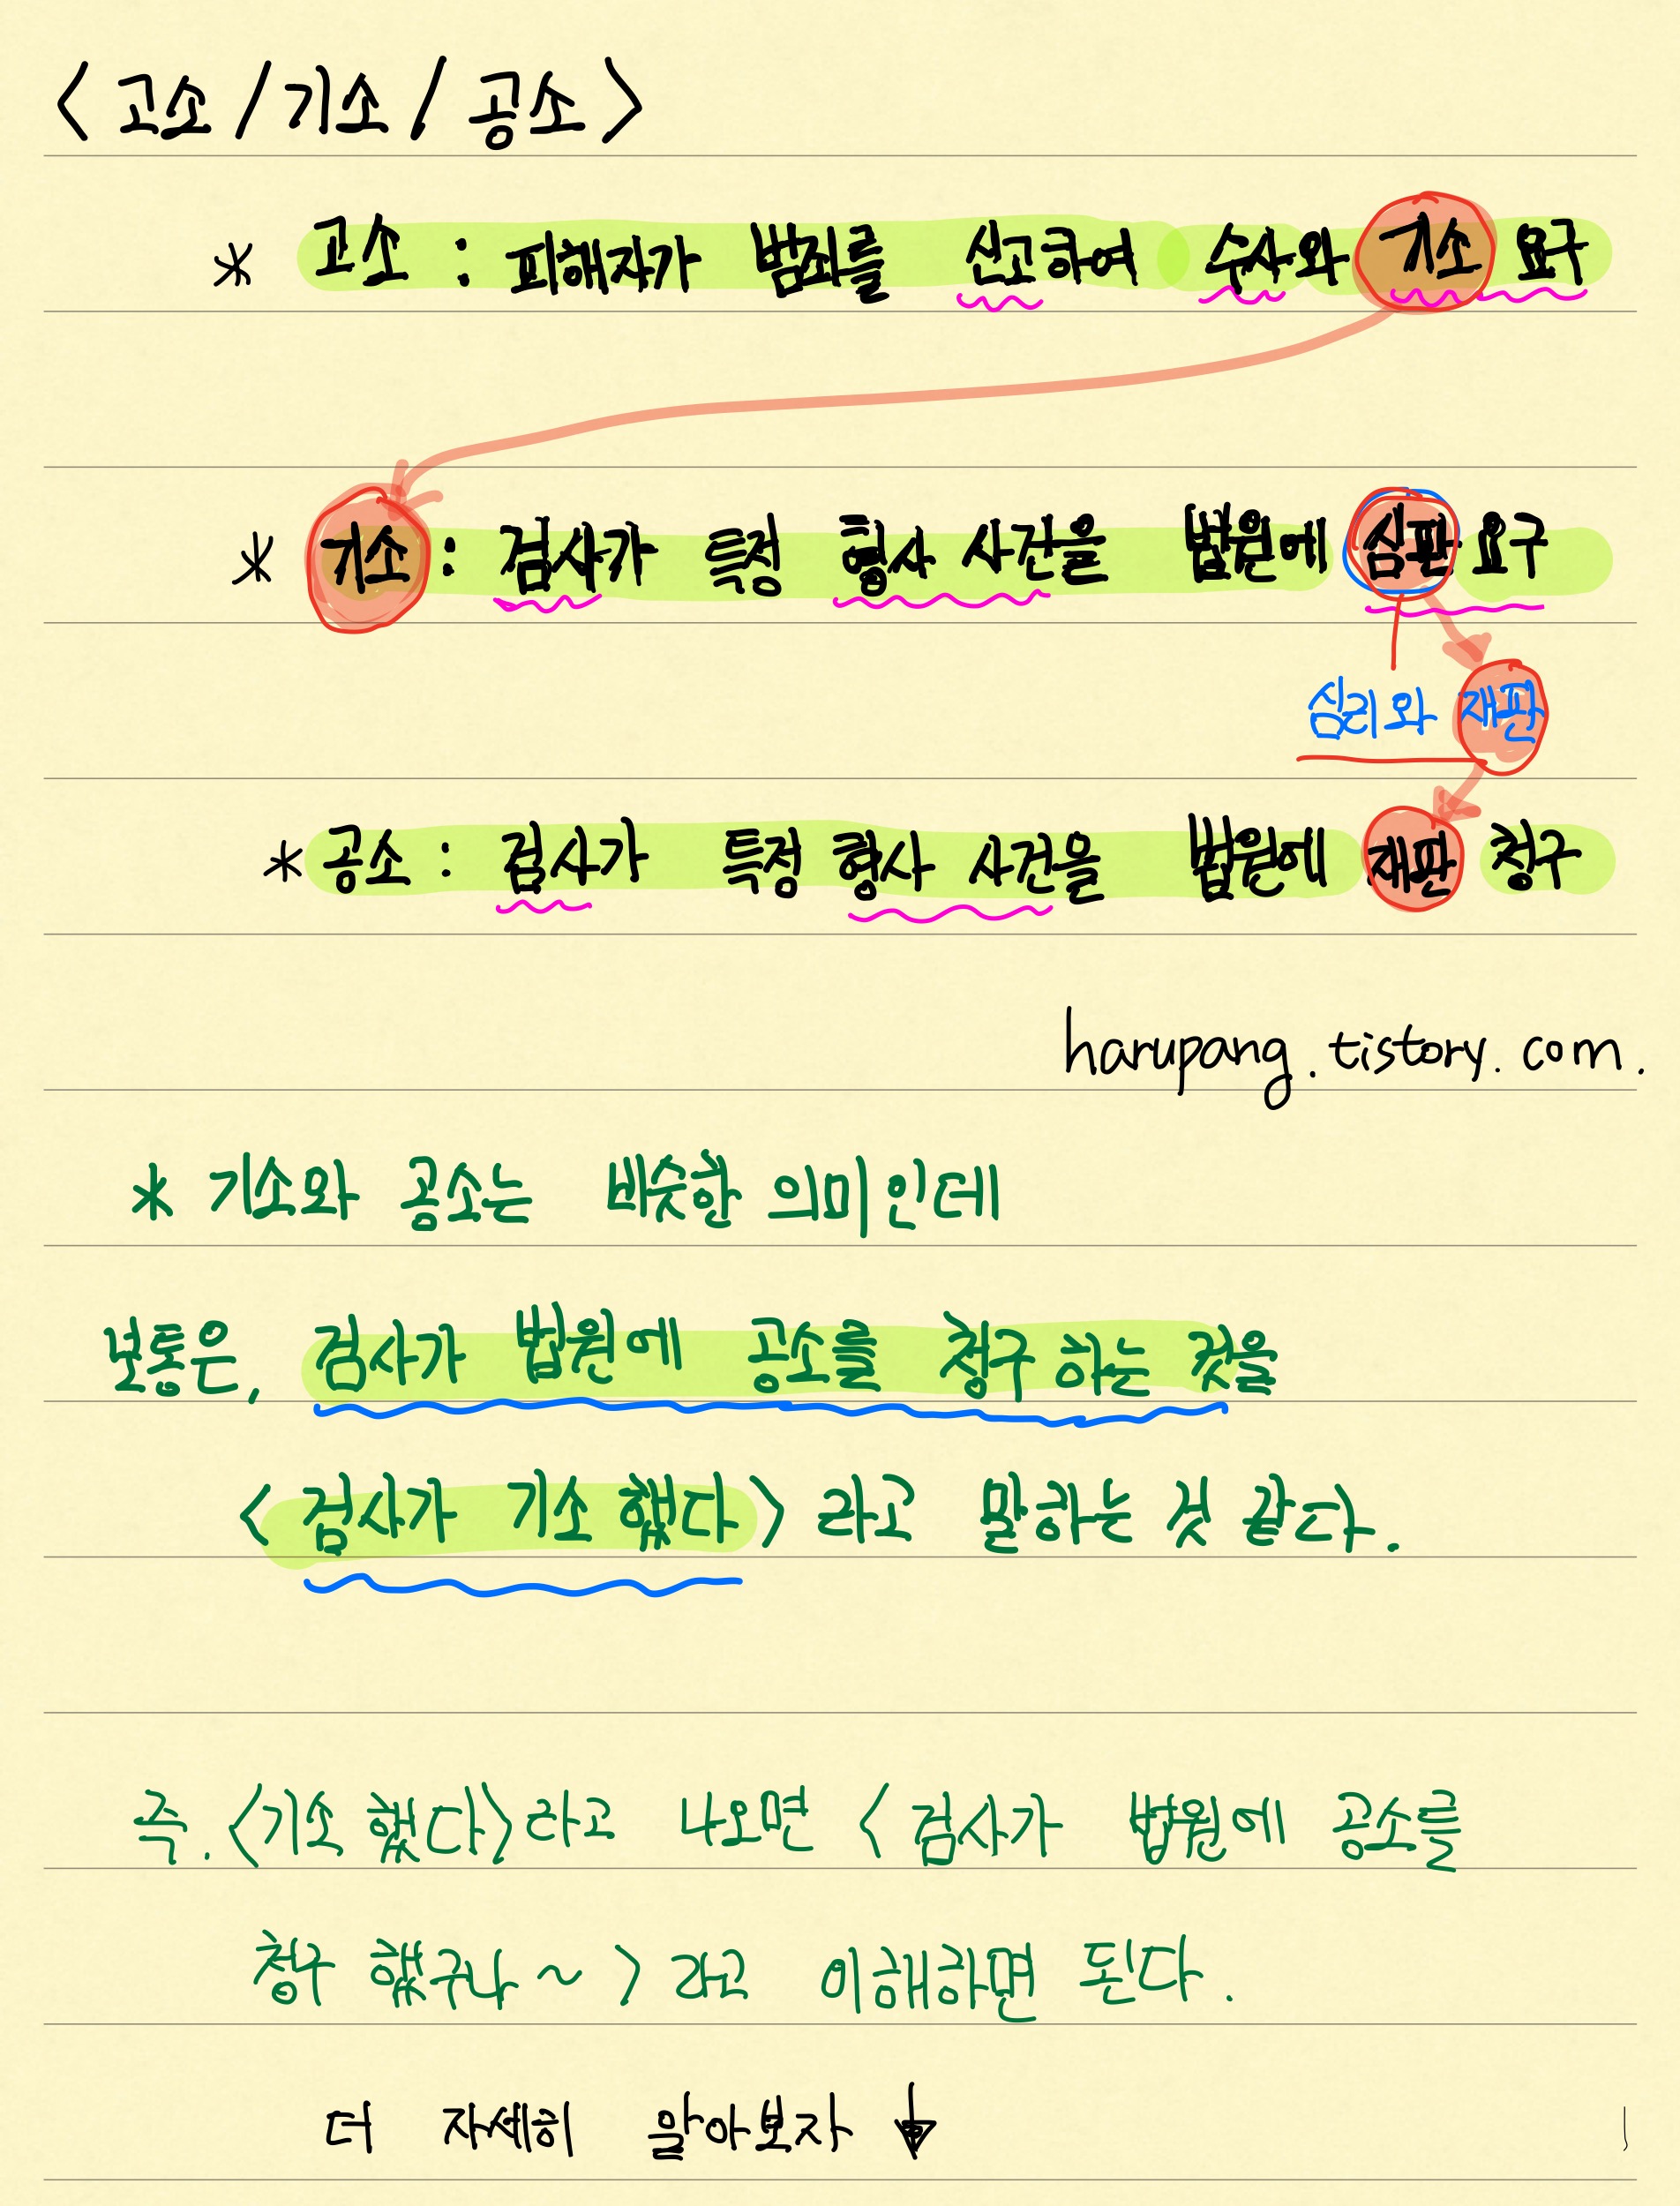 < 고소 / 기소 / 공소 >
* 고소 : 피해자가 범죄를 신고하여 수사와 기소 요구
* 기소 : 검사가 특정 형사 사건을 법원에 심판 요구
심리와 재판
* 공소 : 검사가 특정 형사 사건을 법원에 재판 청구
harupang.tistory.com.
* 기소와 공소는 비슷한 의미인데
보통은, 검사가 법원에 공소를 청구 하는 것을
< 검사가 기소 했다 > 라고 말하는 것 같다.
즉. <기소 했다> 라고 나오면 < 검사가 법원에 공소를
청구 했구나 ~ > 라고 이해하면 된다.
더 자세히 알아보자 ↓